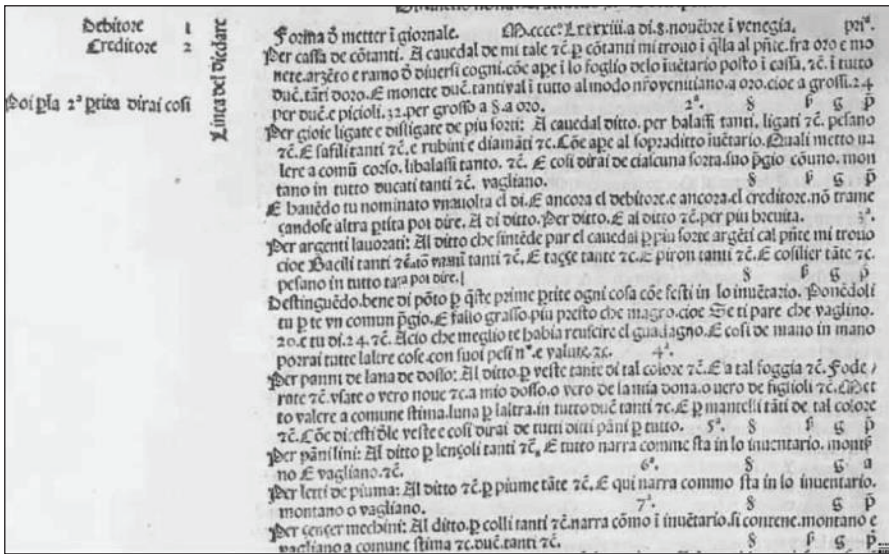 Debitore 1
Creditore 2
Poi ꝑla 2ª ꝑtita dirai cosi
Linea del diedare
Forma ð metter i giornale. M.cccc°.Lxxxxiii.a di.8.nouẽbre i venegia. priª.
Per cassa de cõtanti. Al cauedal de mi tale ⁊c̃.ꝑ cõtanti mi trouo i q̃lla al pñte.fra oro e mo
nete.arzẽto e ramo ð diuersi cogni.cõe ape i lo foglio delo iuẽtario posto i cassa.⁊c̃.i tutto
duc̃.tãti doro.E monete duc̃.tanti val i tutto al modo nr̃o venitiano.a oro.cioe a grossi.24
per duc̃.e picioli.32.per grosso a §.a oro. 2ª. § ꝼ g p̃
Per gioie ligate e disligate de piu sorti: Al cauedal ditto.per balassi tanti. ligati ⁊c̃. pesano
⁊c̃.E safili tanti ⁊c̃.e rubini e diamãti ⁊c̃.Cõe ape al sopraditto iuẽtario.Quali metto va
lere a comũ corso.li balassi tanto. ⁊c̃. E cosi dirai de cialcuna sorta.suo p̃gio cõuno. mon
tano in tutto ducati tanti ⁊c̃. vagliano. § ꝼ g p̃
E hauẽdo tu nominato vnauolta el di.E ancora el debitore.e ancora.el creditore.nõ trame
çandose altra ꝑtita poi dire. A di ditto.Per ditto.E al ditto ⁊c̃.per piu breuita. 3ª.
Per argenti lauorati: Al ditto che sintẽde pur el cauedal ꝑ piu sorte argẽti cal pñte mi trouo
cioe Bacili tanti ⁊c̃. tanti ⁊c̃.E taççe tante ⁊c̃.E piron tanti ⁊c̃.E cosilier tãte ⁊c̃.
pesano in tutto poi dire. § ꝼ g p̃
Destinguẽdo.bene di põto ꝑ q̃ste prime ꝑtite ogni cosa cõe festi in lo inuẽtario. Ponẽdoli
tu ꝑ te vn comun p̃gio.E fallo grasso.piu presto che magro.cioe Se ti pare che vaglino.
20.e tu di.24.⁊c̃.Acio che meglio te habia reuscire el guadagno.E cosi de mano in mano
porrai tutte laltre cose.con suoi pesi nº.e valute.⁊c. 4ª.
Per panni de lana de dosso: Al ditto.ꝑ veste tante di tal colore ⁊c̃.E a tal foggia ⁊c̃. Fode
rate ⁊c̃.vsate o vero noue ⁊c.a mio dosso.o vero de la mia dona.o uero de figlioli ⁊c̃.Met
to valere a comune stima.luna ꝑ laltra.in tutto duc̃ tanti ⁊c̃.E ꝑ mantelli tãti de tal colore
⁊c̃.Cõe di:esti ðle veste e cosi dirai de tutti ditti pãni ꝑ tutto. 5ª. § ꝼ g p̃
Per pãnilini: Al ditto ꝑ lençoli tanti ⁊c̃, E tutto narra comme sta in lo inuentario.
no E vagliano.⁊c̃. 6ª. § g a
Per letti de piuma: Al ditto ⁊c̃.ꝑ piume tãte ⁊c̃.E qui narra commo sta in lo inuentario.
montano o vagliano. 7ª. § g p̃
Per çençer mechini: Al ditto.ꝑ colli tanti ⁊c̃.narra cõmo i inuẽtario.si contene.montano e
vagliano a comune stima ⁊c.duc̃.tanti ⁊c̃. § ꝼ g p̃